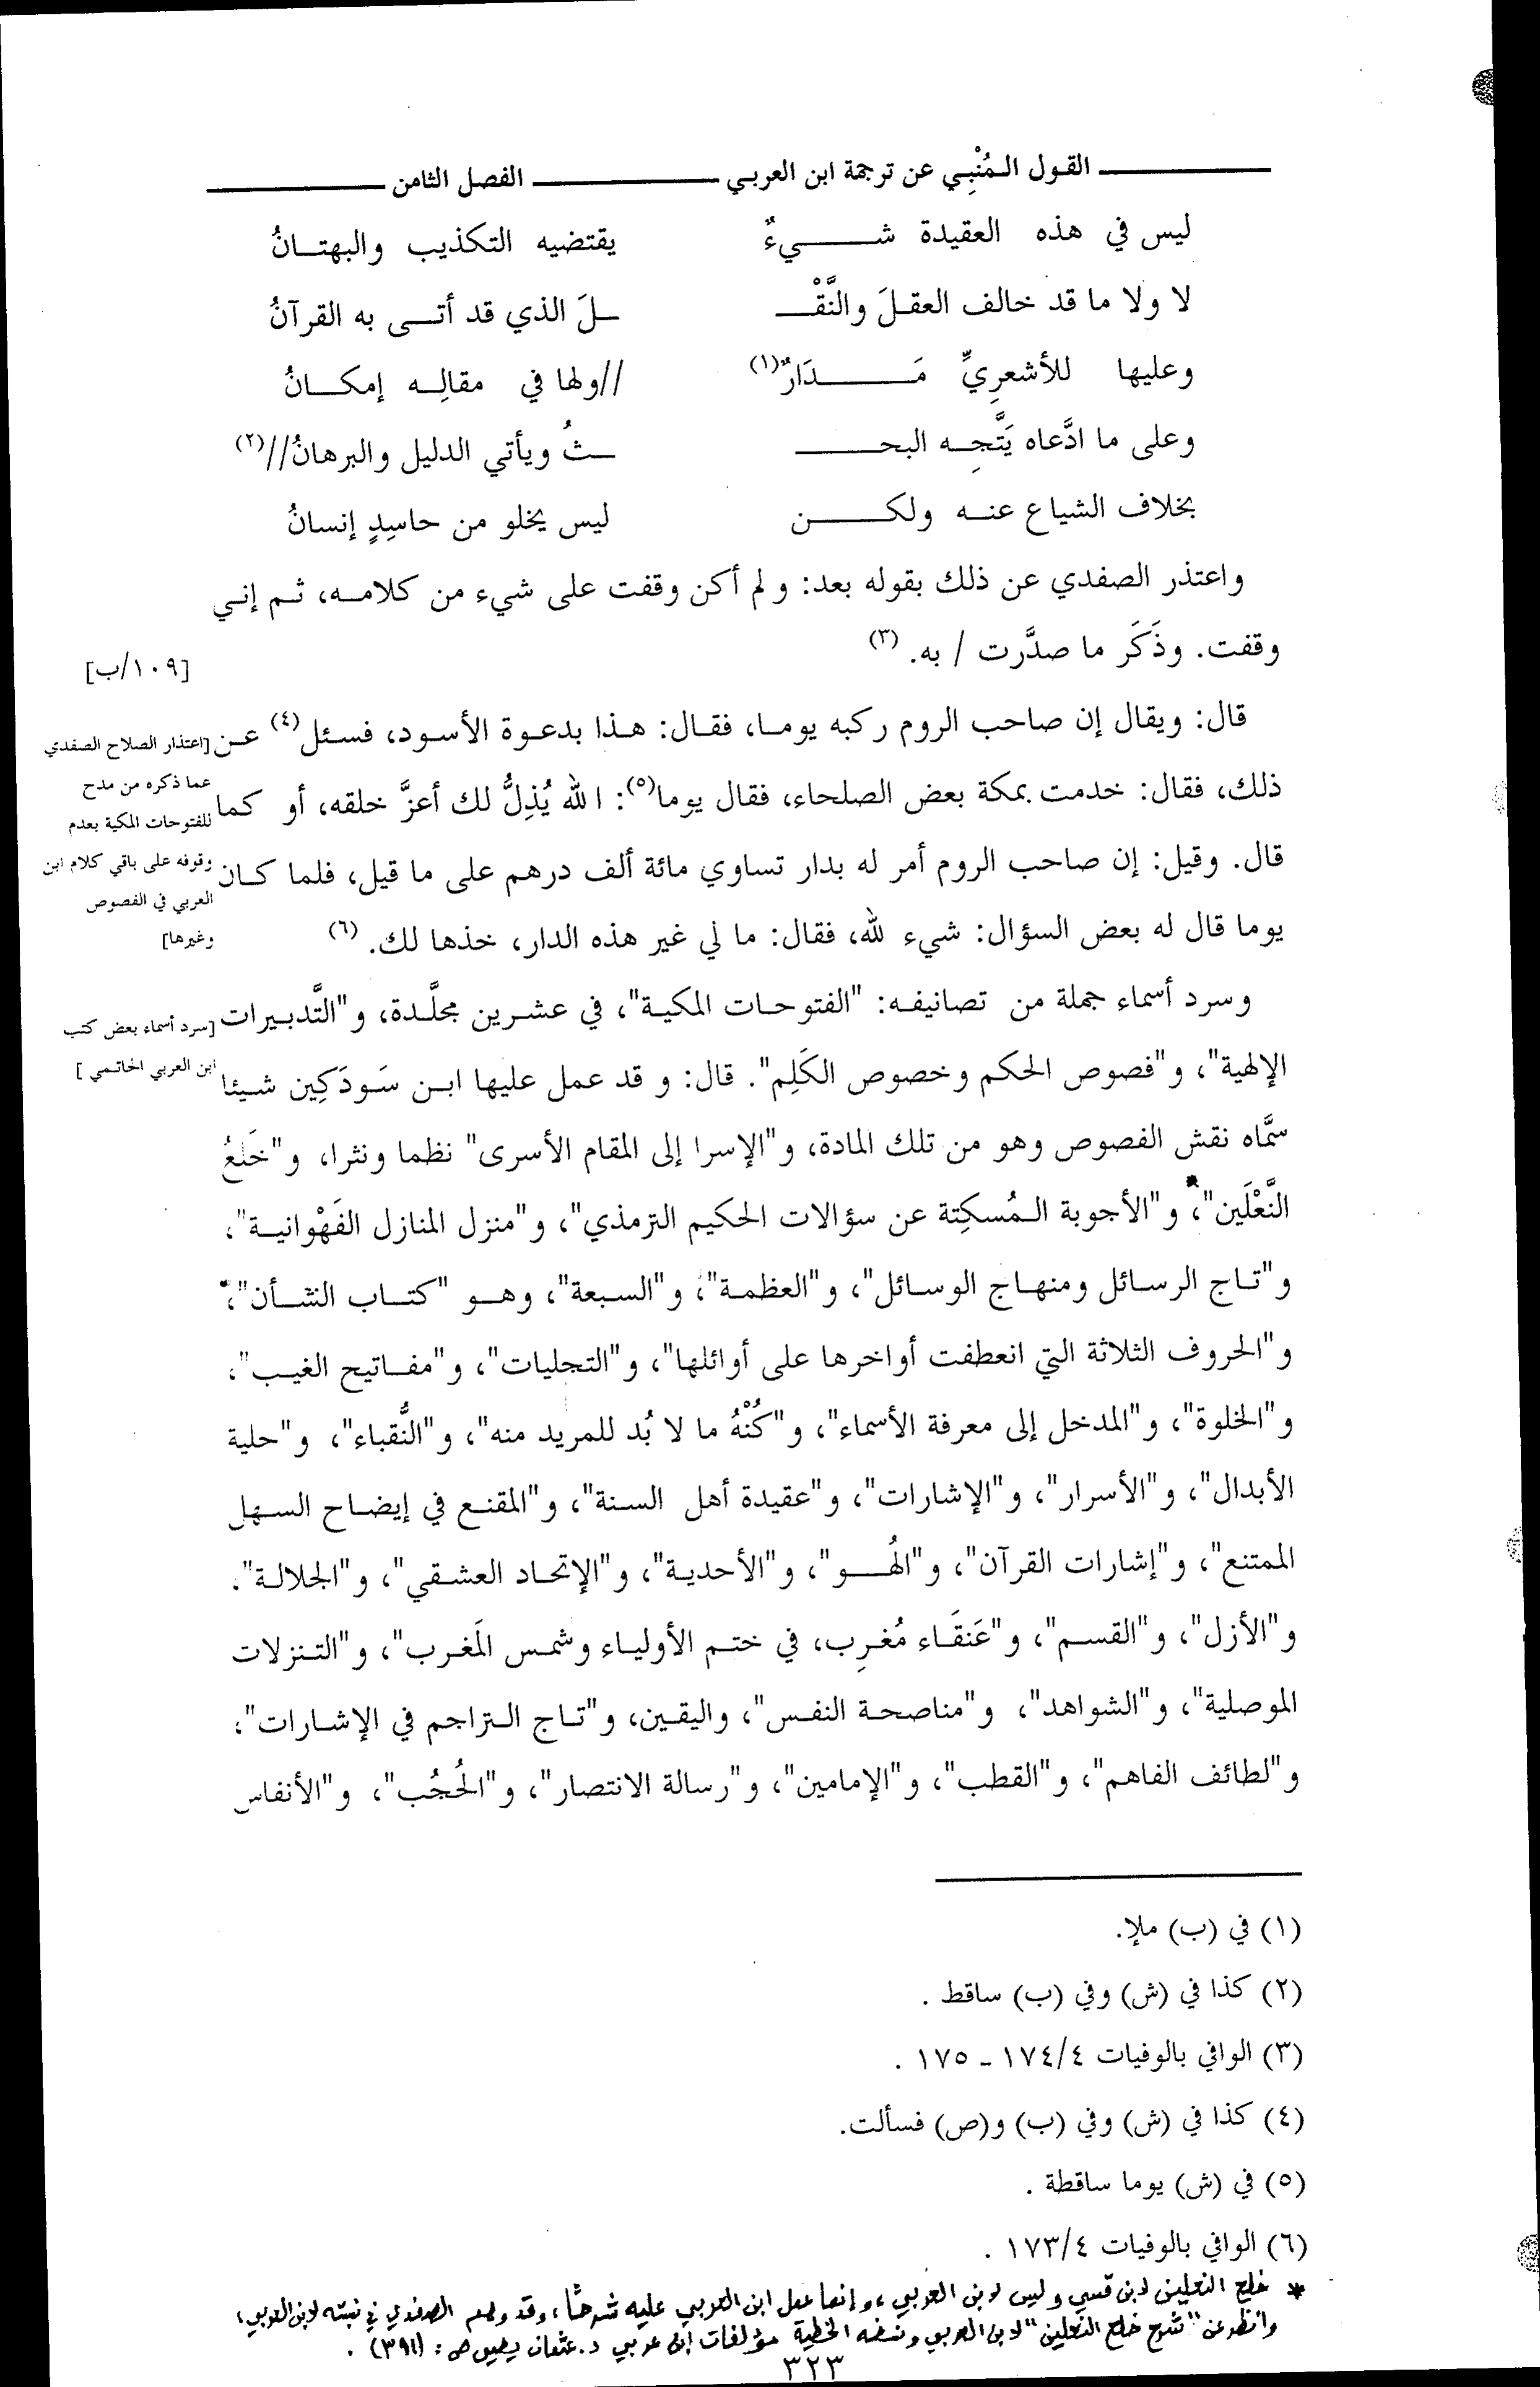 القول الـمُنْبِي عن ترجمة ابن العربي الفصل الثامن
ليس في هذه العقيدة شـــــيءٌ يقتضيه التكذيب والبهتـانُ
لا ولا ما قد خالف العقـلَ والنَّقْـــ ـــلَ الذي قد أتـــى به القرآنُ
وعليها للأشعرِيِّ مَـــــدَارٌ(١) //ولها في مقالِــه إمكـــانُ
وعلى ما ادَّعاه يَتَّجِــه البحـــــ ــــثُ ويأتي الدليل والبرهانُ//(٢)
بخلاف الشياع عنــه ولكـــــن ليس يخلو من حاسِدٍ إنسانُ
واعتذر الصفدي عن ذلك بقوله بعد: ولم أكن وقفت على شيء من كلامــه، ثــم إنـي
وقفت. وذَكَر ما صدَّرت / به. (٣)
[١٠٩/ب]
قال: ويقال إن صاحب الروم ركبه يومـا، فقـال: هـذا بدعـوة الأسـود، فسـئل(٤) عـن
ذلك، فقال: خدمت بمكة بعض الصلحاء، فقال يوما(٥): الله يُذِلُّ لك أعزَّ خلقه، أو كما
قال. وقيل: إن صاحب الروم أمر له بدار تساوي مائة ألف درهم على ما قيل، فلما كـان
يوما قال له بعض السؤال: شيء لله، فقال: ما لي غير هذه الدار، خذها لك. (٦)
[اعتذار الصلاح الصفدي
عما ذكره من مدح
للفتوحات المكية بعدم
وقوفه على باقي كلام ابن
العربي في الفصوص
وغيرها]
وسرد أسماء جملة من تصانيفـه: "الفتوحـات المكيـة"، في عشـرين مجلَّـدة، و"التَّدبـيرات
الإلهية"، و"فصوص الحكم وخصوص الكَلِم". قال: و قد عمل عليها ابـن سَـودَكِين شـيئا
[سرد أسماء بعض كتب
ابن العربي الحاتمي ]
سمَّاه نقش الفصوص وهو من تلك المادة، و"الإسرا إلى المقام الأسرى" نظما ونثرا، و"خَلعُ
النَّعْلَين"،* و"الأجوبة الـمُسكِتة عن سؤالات الحكيم الترمذي"، و"منزل المنازل الفَهْوانيـة"،
و"تـاج الرسـائل ومنهـاج الوسـائل"، و"العظمـة"، و"السـبعة"، وهـو "كتـاب الشـأن"،
و"الحروف الثلاثة التي انعطفت أواخرها على أوائلها"، و"التجليات"، و"مفـاتيح الغيـب"،
و"الخلوة"، و"المدخل إلى معرفة الأسماء"، و"كُنْهُ ما لا بُد للمريد منه"، و"النُّقباء"، و"حلية
الأبدال"، و"الأسرار"، و"الإشارات"، و"عقيدة أهل السـنة"، و"المقنـع في إيضـاح السـهل
الممتنع"، و"إشارات القرآن"، و"الهُــو"، و"الأحديـة"، و"الإتحـاد العشـقي"، و"الجلالـة".
و"الأزل"، و"القسـم"، و"عَنقَـاء مُغـرِب، في ختـم الأوليـاء وشمـس المَغـرب"، و"التـنزلات
الموصلية"، و"الشواهد"، و"مناصحـة النفـس"، واليقـين، و"تـاج الـتراجم في الإشـارات"،
و"لطائف الفاهم"، و"القطب"، و"الإمامين"، و"رسالة الانتصار"، و"الحُجُب"، و"الأنفاس
(١) في (ب) ملإ.
(٢) كذا في (ش) وفي (ب) ساقط .
(٣) الوافي بالوفيات ١٧٤/٤ ـ ١٧٥ .
(٤) كذا في (ش) وفي (ب) و(ص) فسألت.
(٥) في (ش) يوما ساقطة .
(٦) الوافي بالوفيات ١٧٣/٤ .
* خلع النعلين لابن قسي وليس لابن العربي، وإنما عمل ابن العربي عليه شرحاً، وقد وهم الصفدي في نسبته لابن العربي،
وانظر عن "شرح خلع النعلين" لابن العربي ونسخه الخطية مؤلفات ابن عربي د. عثمان يحيى ص: (٣٩١) .
٣٢٣